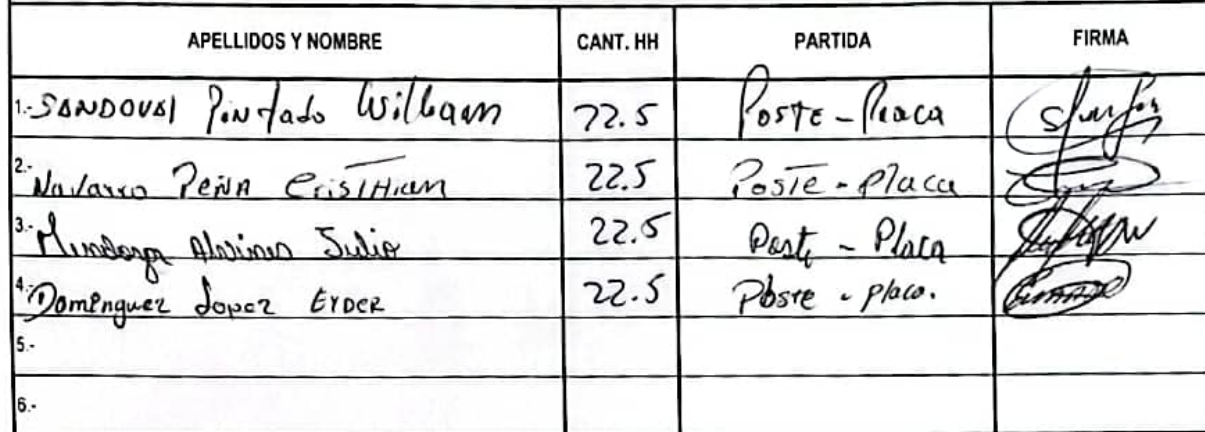 APELLIDOS Y NOMBRE CANT. HH PARTIDA FIRMA
1.- SANDOVAl Pintado William 22.5 Poste - Placa
2.- Navarro Peña CrisTHian 22.5 Poste - Placa
3.- Mendoza Julio 22.5 Poste - Placa
4.- Dominguez Lopez EYDER 22.5 Poste - placa.
5.-
6.-